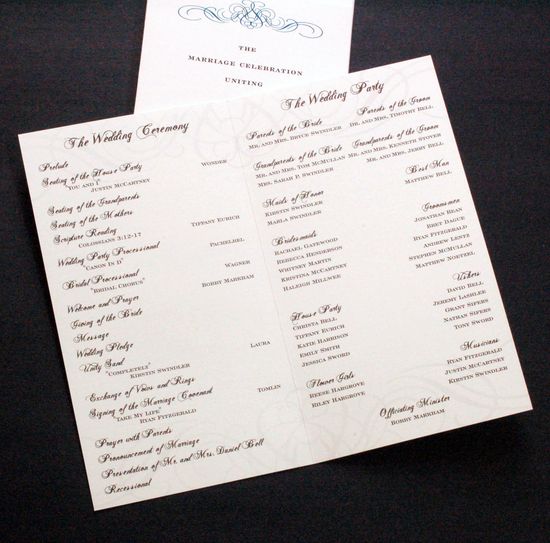 THE
MARRIAGE CELEBRATION
UNITING
The Wedding Ceremony
Prelude
Seating of the House Party WONDER
"YOU AND I" JUSTIN MCCARTNEY
Seating of the Grandparents
Seating of the Mothers
Scripture Reading TIFFANY EURICH
COLOSSIANS 3:12-17
Wedding Party Processional PACHELBEL
"CANON IN D"
Bridal Processional WAGNER
"BRIDAL CHORUS"
Welcome and Prayer BOBBY MARKHAM
Giving of the Bride
Message
Wedding Pledge
Unity Sand LAURA
"COMPLETELY" KIRSTIN SWINDLER
Exchange of Vows and Rings
Signing of the Marriage Covenant TOMLIN
"TAKE MY LIFE" RYAN FITZGERALD
Prayer with Parents
Pronouncement of Marriage
Presentation of Mr. and Mrs. Daniel Bell
Recessional
The Wedding Party
Parents of the Bride
MR. AND MRS. BRYCE SWINDLER
Parents of the Groom
DR. AND MRS. TIMOTHY BELL
Grandparents of the Bride
MR. AND MRS. TOM MCMULLAN
MRS. SARAH P. SWINDLER
Grandparents of the Groom
MR. AND MRS. KENNETH STOVER
MR. AND MRS. JERRY BELL
Maids of Honor
KIRSTIN SWINDLER
MARLA SWINDLER
Best Man
MATTHEW BELL
Bridesmaids
RACHAEL GATEWOOD
REBECCA HENDERSON
WHITNEY MARTIN
KRISTINA MCCARTNEY
HALEIGH MILLWEE
Groomsmen
JONATHAN BEAN
BRET DAGUE
RYAN FITZGERALD
ANDREW LENTZ
STEPHEN MCMULLAN
MATTHEW NOETZEL
House Party
CHRISTA BELL
TIFFANY EURICH
KATIE HARRISON
EMILY SMITH
JESSICA SWORD
Ushers
DAVID BELL
JEREMY LASHLEE
GRANT SIPERS
NATHAN SIPERS
TONY SWORD
Flower Girls
REESE HARGROVE
RILEY HARGROVE
Musicians
RYAN FITZGERALD
JUSTIN MCCARTNEY
KIRSTIN SWINDLER
Officiating Minister
BOBBY MARKHAM